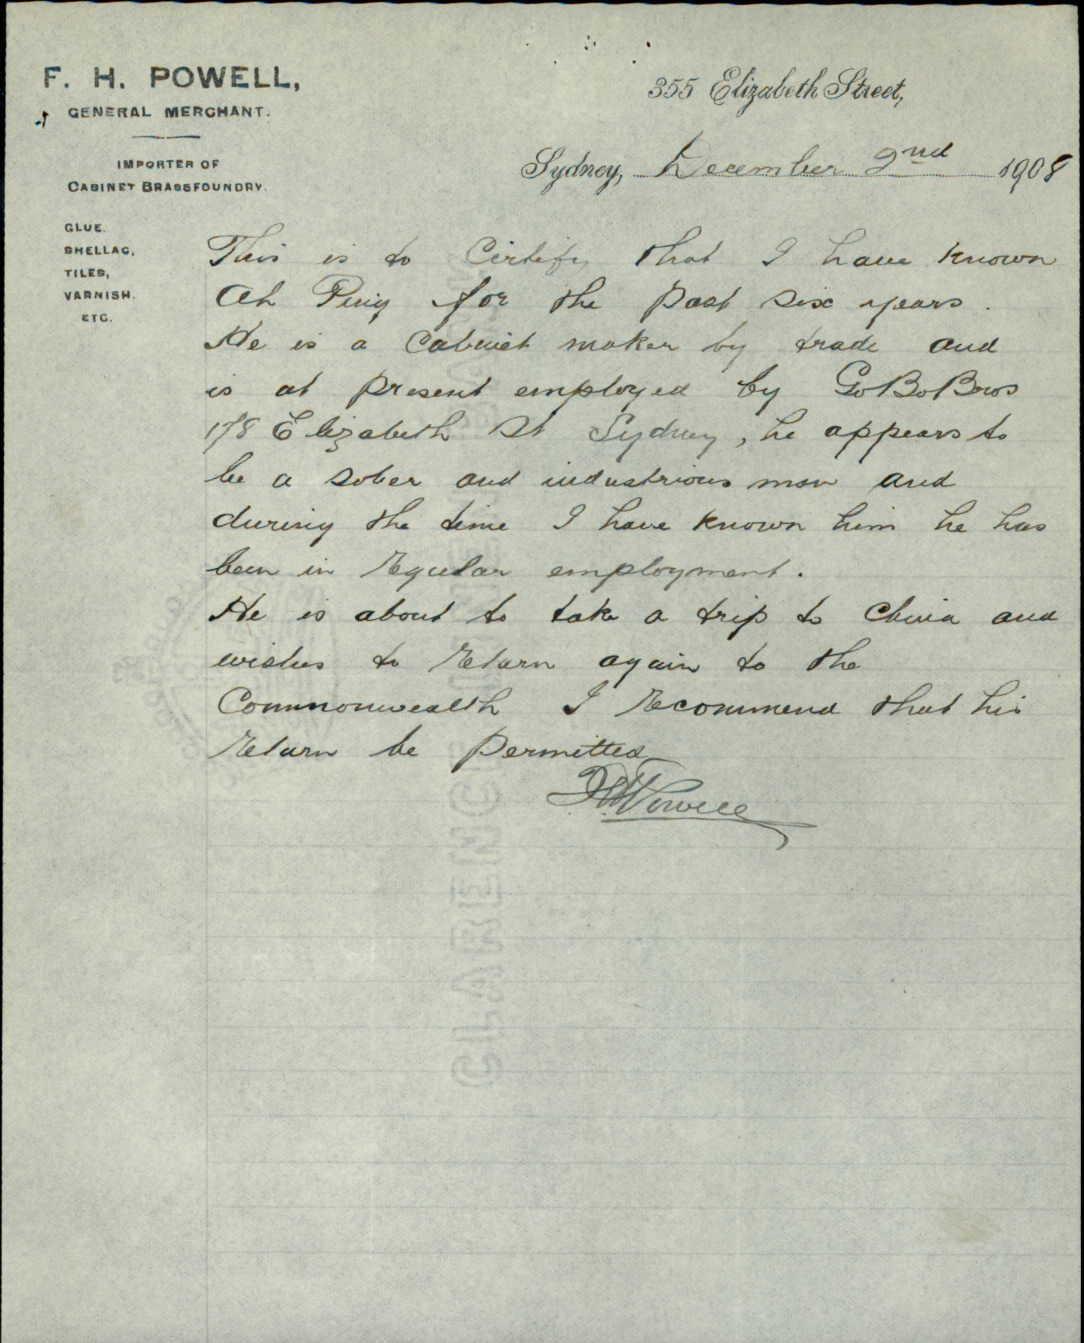 F. H. POWELL,
GENERAL MERCHANT.
IMPORTER OF
CABINET BRASSFOUNDRY.
GLUE.
SHELLAC,
TILES,
VARNISH.
ETC.
355 Elizabeth Street,
Sydney, December 2nd 1908
This is to Certify that I have known
Ah Ping for the past six years.
He is a Cabinet maker by trade and
is at present employed by
178 Elizabeth St Sydney, he appears to
be a sober and industrious man and
during the time I have known him he has
been in regular employment.
He is about to take a trip to China and
wishes to return again to the
Commonwealth I recommend that his
return be permitted
F.H. Powell